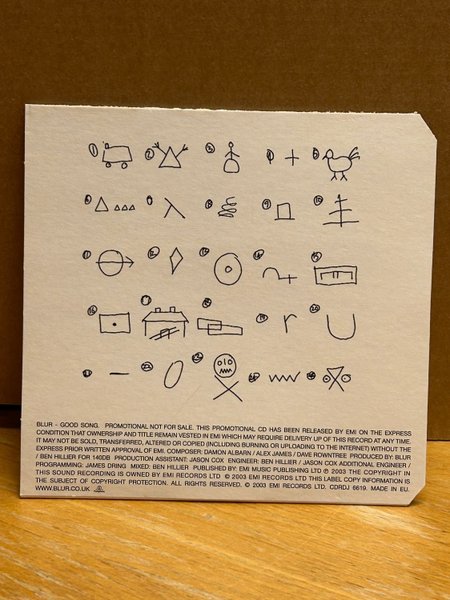 BLUR - GOOD SONG. PROMOTIONAL NOT FOR SALE. THIS PROMOTIONAL CD HAS BEEN RELEASED BY EMI ON THE EXPRESS
CONDITION THAT OWNERSHIP AND TITLE REMAIN VESTED IN EMI WHICH MAY REQUIRE DELIVERY UP OF THIS RECORD AT ANY TIME.
IT MAY NOT BE SOLD, TRANSFERRED, ALTERED OR COPIED (INCLUDING BURNING OR UPLOADING TO THE INTERNET) WITHOUT THE
EXPRESS PRIOR WRITTEN APPROVAL OF EMI. COMPOSER: DAMON ALBARN / ALEX JAMES / DAVE ROWNTREE PRODUCED BY: BLUR
/ BEN HILLIER FOR 140DB PRODUCTION ASSISTANT: JASON COX. ENGINEER: BEN HILLIER / JASON COX ADDITIONAL ENGINEER /
PROGRAMMING: JAMES DRING MIXED: BEN HILLIER PUBLISHED BY: EMI MUSIC PUBLISHING LTD ℗ 2003 THE COPYRIGHT IN
THIS SOUND RECORDING IS OWNED BY EMI RECORDS LTD © 2003 EMI RECORDS LTD THIS LABEL COPY INFORMATION IS
THE SUBJECT OF COPYRIGHT PROTECTION. ALL RIGHTS RESERVED. © 2003 EMI RECORDS LTD. CDRDJ 6619. MADE IN EU.
WWW.BLUR.CO.UK